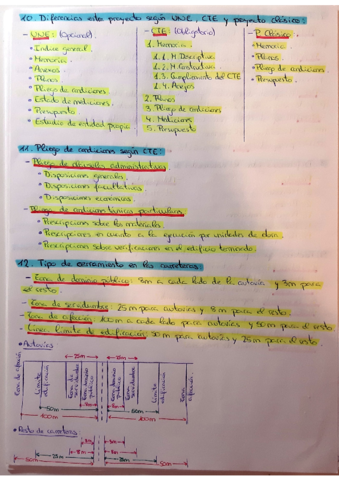 10. Diferencias entre proyecto según UNE, CTE y proyecto clásico:
- UNE: (Opcional)
• Índice general.
• Memoria.
• Anexos.
• Planos
• Pliego de condiciones.
• Estado de mediciones.
• Presupuesto.
• Estudio de entidad propia.
- CTE: (Obligatorio)
1. Memoria.
1.1. M. Descriptiva
1.2. M. Constructiva
1.3. Cumplimiento del CTE
1.4. Anexos
2. Planos
3. Pliego de condiciones
4. Mediciones
5. Presupuesto
- P. Clásico.
• Memoria.
• Planos.
• Pliego de condiciones.
• Presupuesto.
11. Pliego de condiciones según CTE:
- Pliego de cláusulas administrativas
• Disposiciones generales.
• Disposiciones facultativas
• Disposiciones económicas.
- Pliego de condiciones técnicas particulares
• Prescripciones sobre los materiales.
• Prescripciones en cuanto a la ejecución por unidades de obra.
• Prescripciones sobre verificaciones en el edificio terminado.
12. Tipo de cerramiento en las carreteras:
- Zona de dominio público: 8m a cada lado de la autovía y 3m para
el resto.
- Zona de servidumbre: 25m para autovías y 8m para el resto.
- Zona de afección: 100m a cada lado para autovías y 50m para el resto
- Línea límite de edificación: 50m para autovías y 25m para el resto.
• Autovías
25m
25m
Zona de afección
Límite edificación
Zona de servidumbre
Zona dominio público
Zona dominio público
Zona de servidumbre
Límite edificación
Zona afección
8m
8m
50m
50m
100m
100m
• Resto de carreteras
3m
3m
8m
8m
25m
25m
50m
50m